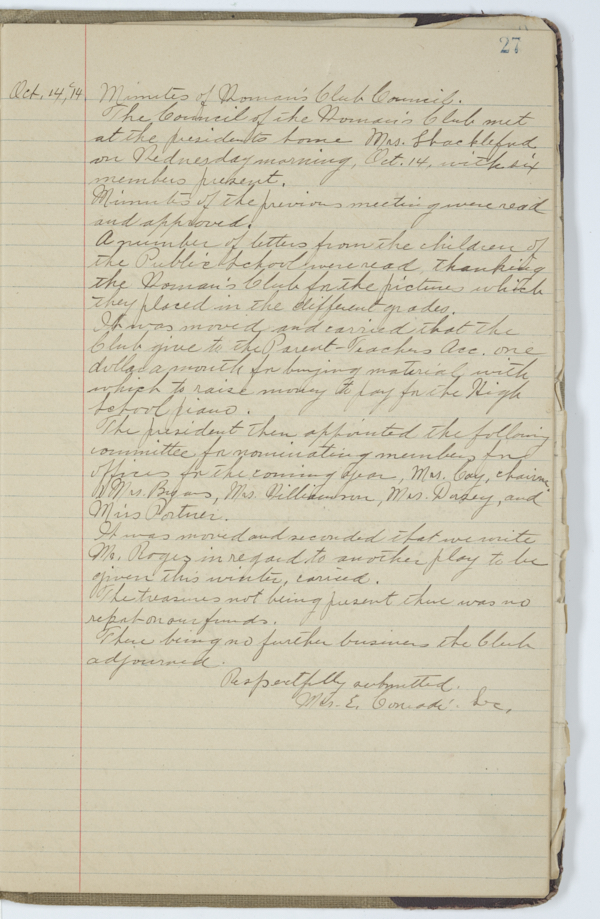 27
Oct. 14, '14. Minutes of Woman's Club Council.
The Council of the Woman's Club met
at the presidents home Mrs. Shackleford
on Wednesday morning, Oct. 14, with six
members present.
Minutes of the previous meeting were read
and approved.
A number of letters from the children of
the Public School were read, thanking
the Woman's Club for the pictures which
they placed in the different grades.
It was moved and carried that the
Club give to the Parent-Teachers Acc. one
dollar a month for buying material with
which to raise money to pay for the High
School piano.
The president then appointed the following
committee for nominating members for
offices for the coming year, Mrs. Coy,
Mrs. Mrs. Williamson, Mrs. and
Miss Portner.
It was moved and seconded that we write
Mr. in regard to another play to be
given this winter, carried.
The treasures not being present there was no
report on our funds.
There being no further business the Club
adjourned.
Respectfully submitted.
Mrs. E. Conradi. Sec.